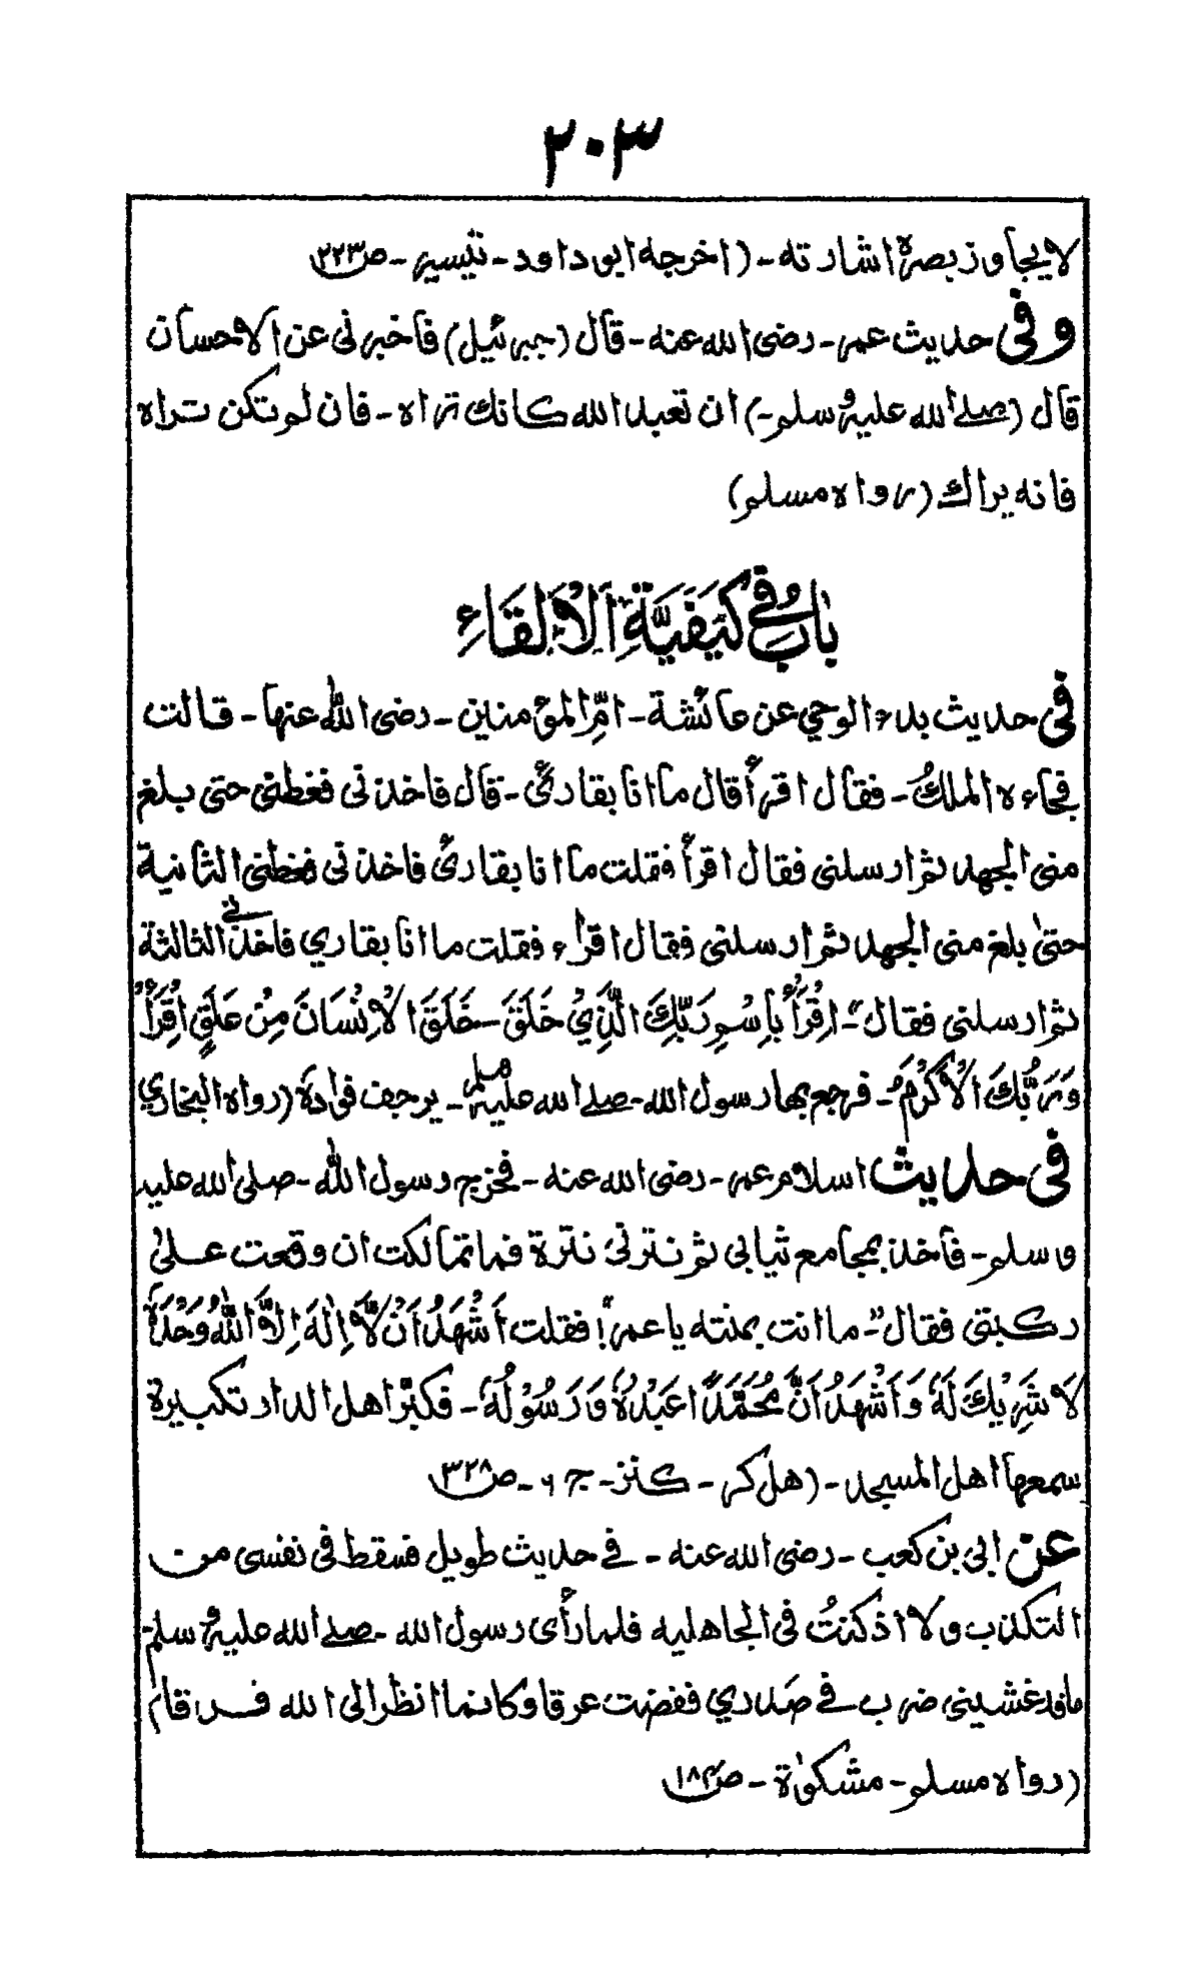 ٢٠٣
لا يجاوز بصرة اشارته - (اخرجه ابو داود - تيسير - ص٢٢٣
وفى حديث عمر - رضى الله عنه - قال (جبرئيل) فأخبرنى عن الاحسان
قال (صلے الله عليه وسلم -) ان تعبد الله كانك تراه - فان لم تكن تراه
فانه يراك (رواه مسلم)
بَابٌ فِي كَيَفَيَّةِ اَلْاِلْقَاءِ
فى حديث بدء الوحي عن عائشة - امِّ المؤمنين - رضى اللّٰه عنها - قالت
فجاءه الملكُ - فقال اقرأ قال ما انا بقارئ - قال فاخذنى فغطنى حتى بلغ
منى الجهد ثم ارسلنى فقال اقرأ فقلت ما انا بقارئ فاخذنى فغطنى الثانية
حتىٰ بلغ منى الجهد ثم ارسلنى فقال اقرأء فقلت ما انا بقاري فاخذنى الثالثة
ثم ارسلنى فقال "- اِقْرَأْ بِاسْمِ رَبِّكَ الَّذِيْ خَلَقَ - خَلَقَ الْاِنْسَانَ مِنْ عَلَقٍ اِقْرَأْ
وَرَبُّكَ الْاَكْرَمُ - فرجع بها رسول الله - صلے الله عليه وسلم - يرجف فوادهٗ (رواه البخاري
فى حديث اسلام عمر - رضى الله عنه - فخرج رسول اللّٰه - صلى الله عليه
وسلم - فأخذ بمجامع ثيابى ثم نترنى نترة فما تمالكت ان وقعت علىٰ
ركبتى فقال "- ما انت بمنته يا عمر"! فقلت اَشْهَدُ اَنْ لَّا اِلٰهَ اِلَّا اللّٰهُ وَحْدَهٗ
لَا شَرِيْكَ لَهٗ وَ اَشْهَدُ اَنَّ مُحَمَّدًا عَبْدُهٗ وَرَسُوْلُهٗ - فكبّر اهل الدار تكبيرة
سمعها اهل المسجد - (هل كر - كنز - ج ٦ - ص٣٢٨
عن ابى بن كعب - رضى الله عنه - فے حديث طويل فسقط فى نفسى من
التكذيب ولا اذ كنتُ فى الجاهليه فلما رأى رسول الله - صلے الله عليه وسلم -
ما قد غشينى ضرب فے صدري ففضت عرقا وكانما انظر الى الله فرقا
(رواه مسلم - مشكوٰة - ص١٨٤